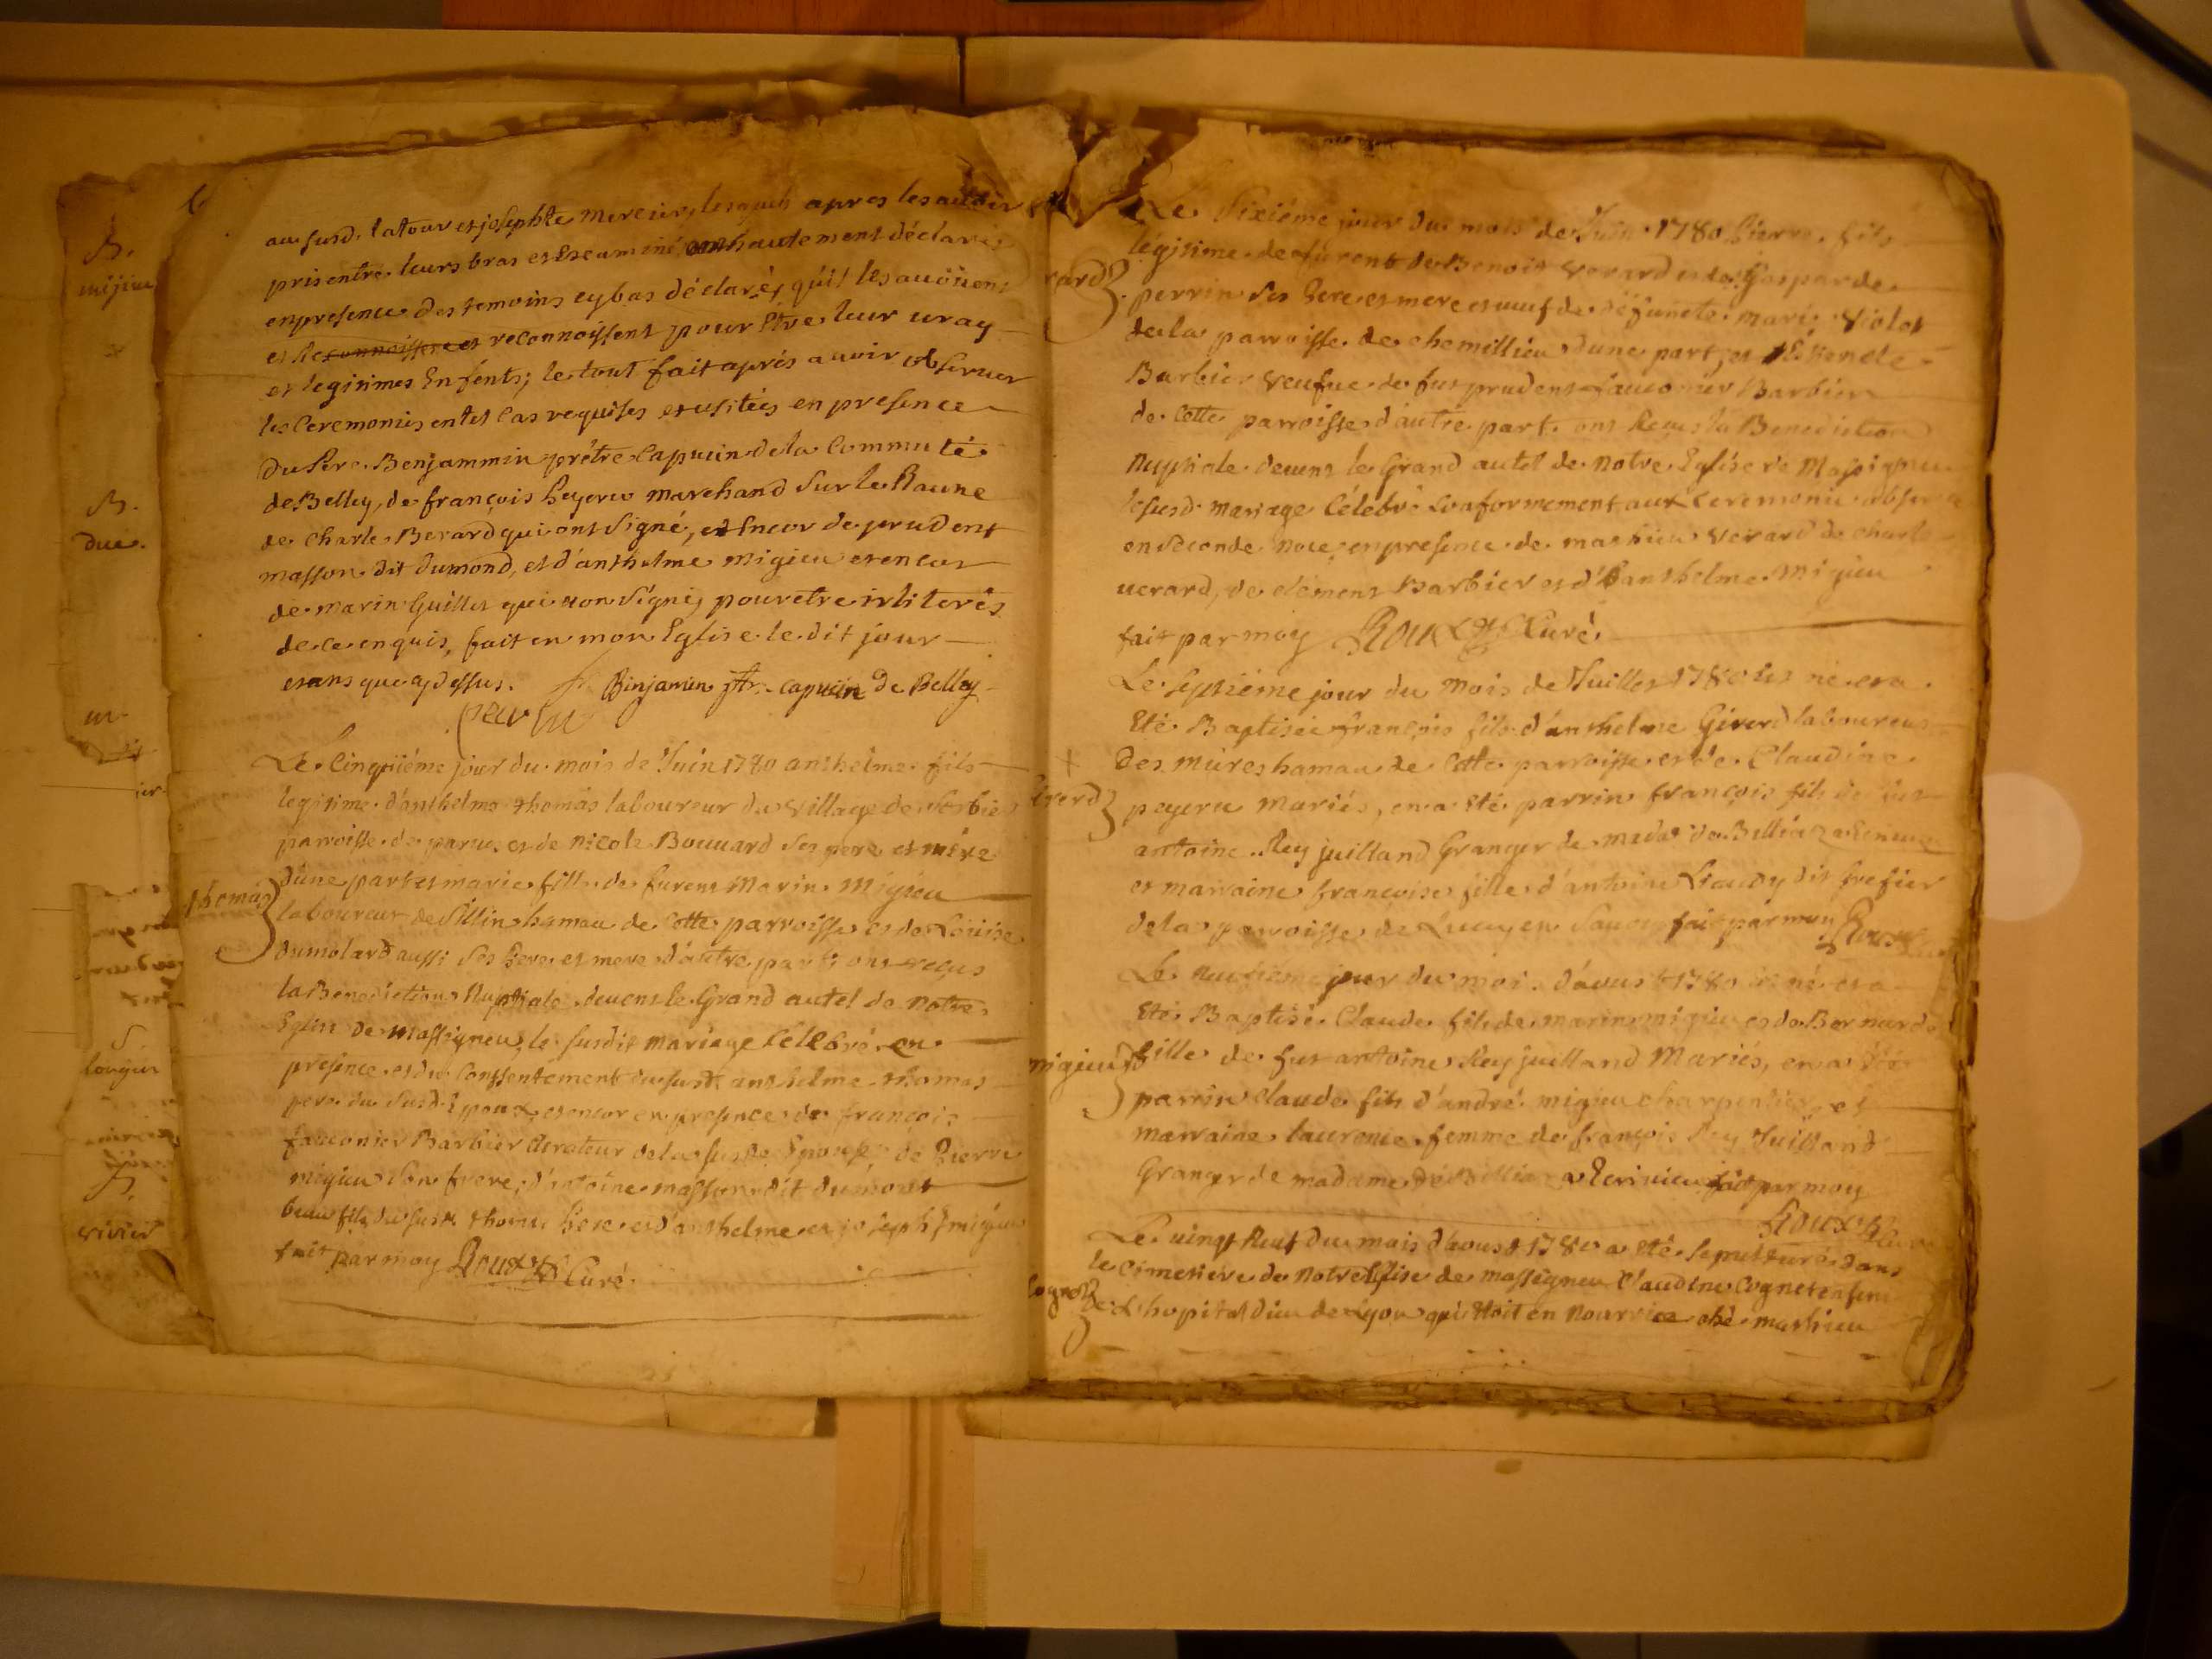 au susd. latour et josephte mercier, lesquels apres les auoir
pris entre leurs bras et Examiné ont hautement déclaré
en presence des temoins cy bas déclarés, qu'il les auoüent
et reconnoissent pour Etre leur uray
et legitimes Enfents; le tout fait aprés auoir obseruer
les Ceremonies en tel cas requises et usitées en presence
du Pere Benjammin prétre Capucin de la Commuté
de Belley, de françois peyeru marchand sur le Raune
de Charle Berard qui ont signé, et Encor de prudent
masson dit dumond, et d'anthelme migieu et encor
de marin Guillet qui non signé, pour etre irliterés
de ce enquis, fait en mon Eglise le dit jour
et ans que cy dessus. fr. Binjamin ptr. capucin de Belley
Le Cinqüiéme jour du mois de Juin 1780 anthelme fils
legitime d'anthelme thomas laboureur du village de
parroisse de parues et de nicole Bouuard ses pere et mére
d'une part et marie fille de furent Marin Migieu
thomas
laboureur de Sillin hamau de Cotte parroisse et de Loüise
dumolard aussi ses Pere et mere d'autre part; ont reçus
la Benediction Nuptiale deuent le Grand autel de Notre
Eglise de Massigneu, le susdit mariage Célébré en
presence et du Conssentement du susd. anthelme thomas
pere du susd. Epoux et encor en presence de françois
fauconier Barbier Curateur de la susde Epouse de Pierre
migieu son frere; d'antoine masson dit dumont
beau fils du susd. thomas Pere et d'anthelme et joseph migieu
fait par moy Roux Curé.
Le Sixiéme jour du mois de Juin 1780 Pierre fils
légitime de furent de Benoit verard et de Gasparde
perrin ses Pere et mere et ueuf de défuncte marie violet
de la parroisse de chemillieu d'une part, et
Barbier veufue de fut prudent fauconier Barbier
de Cotte parroisse d'autre part ont Reçus la Benediction
Nuptiale deuent le Grand autel de Notre Eglise de Massigneu
le susd. mariage Célébré Conformement aux Ceremonie obserué
en seconde noce, en presence de mathieu verard de charle
uerard, de clément Barbier et d'anthelme Migieu
fait par moy Roux Curé.
Le septiéme jour du Mois de Juillet 1780 est né et a
Eté Baptisée françois fils d'anthelme Girerd laboureur
Des mûres hamau de Cotte parroisse et de Claudine
peyeru Mariés, en a Eté parrin françois fils de fut
antoine Rey juilland Granger de mada de Bellia
et marraine françoise fille d'antoine dit frefier
de la parroisse de Lucey en Sauoy fait par moy Roux
Le Neufieme jour du moi d'aoust 1780 est né et a
Eté Baptisé Claude fils de marin migieu et de Bernarde
migieu
fille de fut antoine Rey juilland Mariés, en a Eté
parrin Claude fils d'andré migieu charpentier et
marraine laurence femme de françois Rey Juilland
Granger de madame de Bellia a Ecriuieu fait par moy
Roux
Le uingt Neuf du mois d'aoust 1780 a Eté sepulturé dans
le Cimetiere de Notre Eglise de Massigneu Claudine Cognet enfent
de L'hopital dieu de Lyon qui Etoit en Nourrice ché mathieu